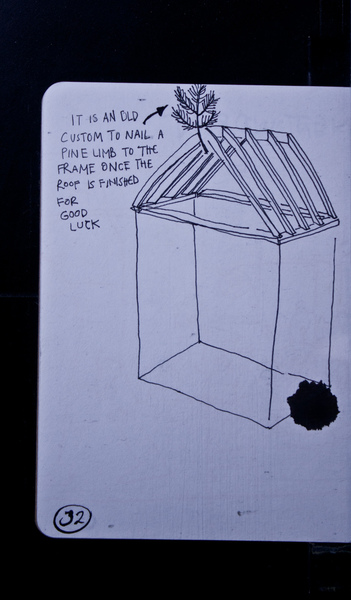 IT IS AN OLD
CUSTOM TO NAIL A
PINE LIMB TO THE
FRAME ONCE THE
ROOF IS FINISHED
FOR
GOOD
LUCK
32